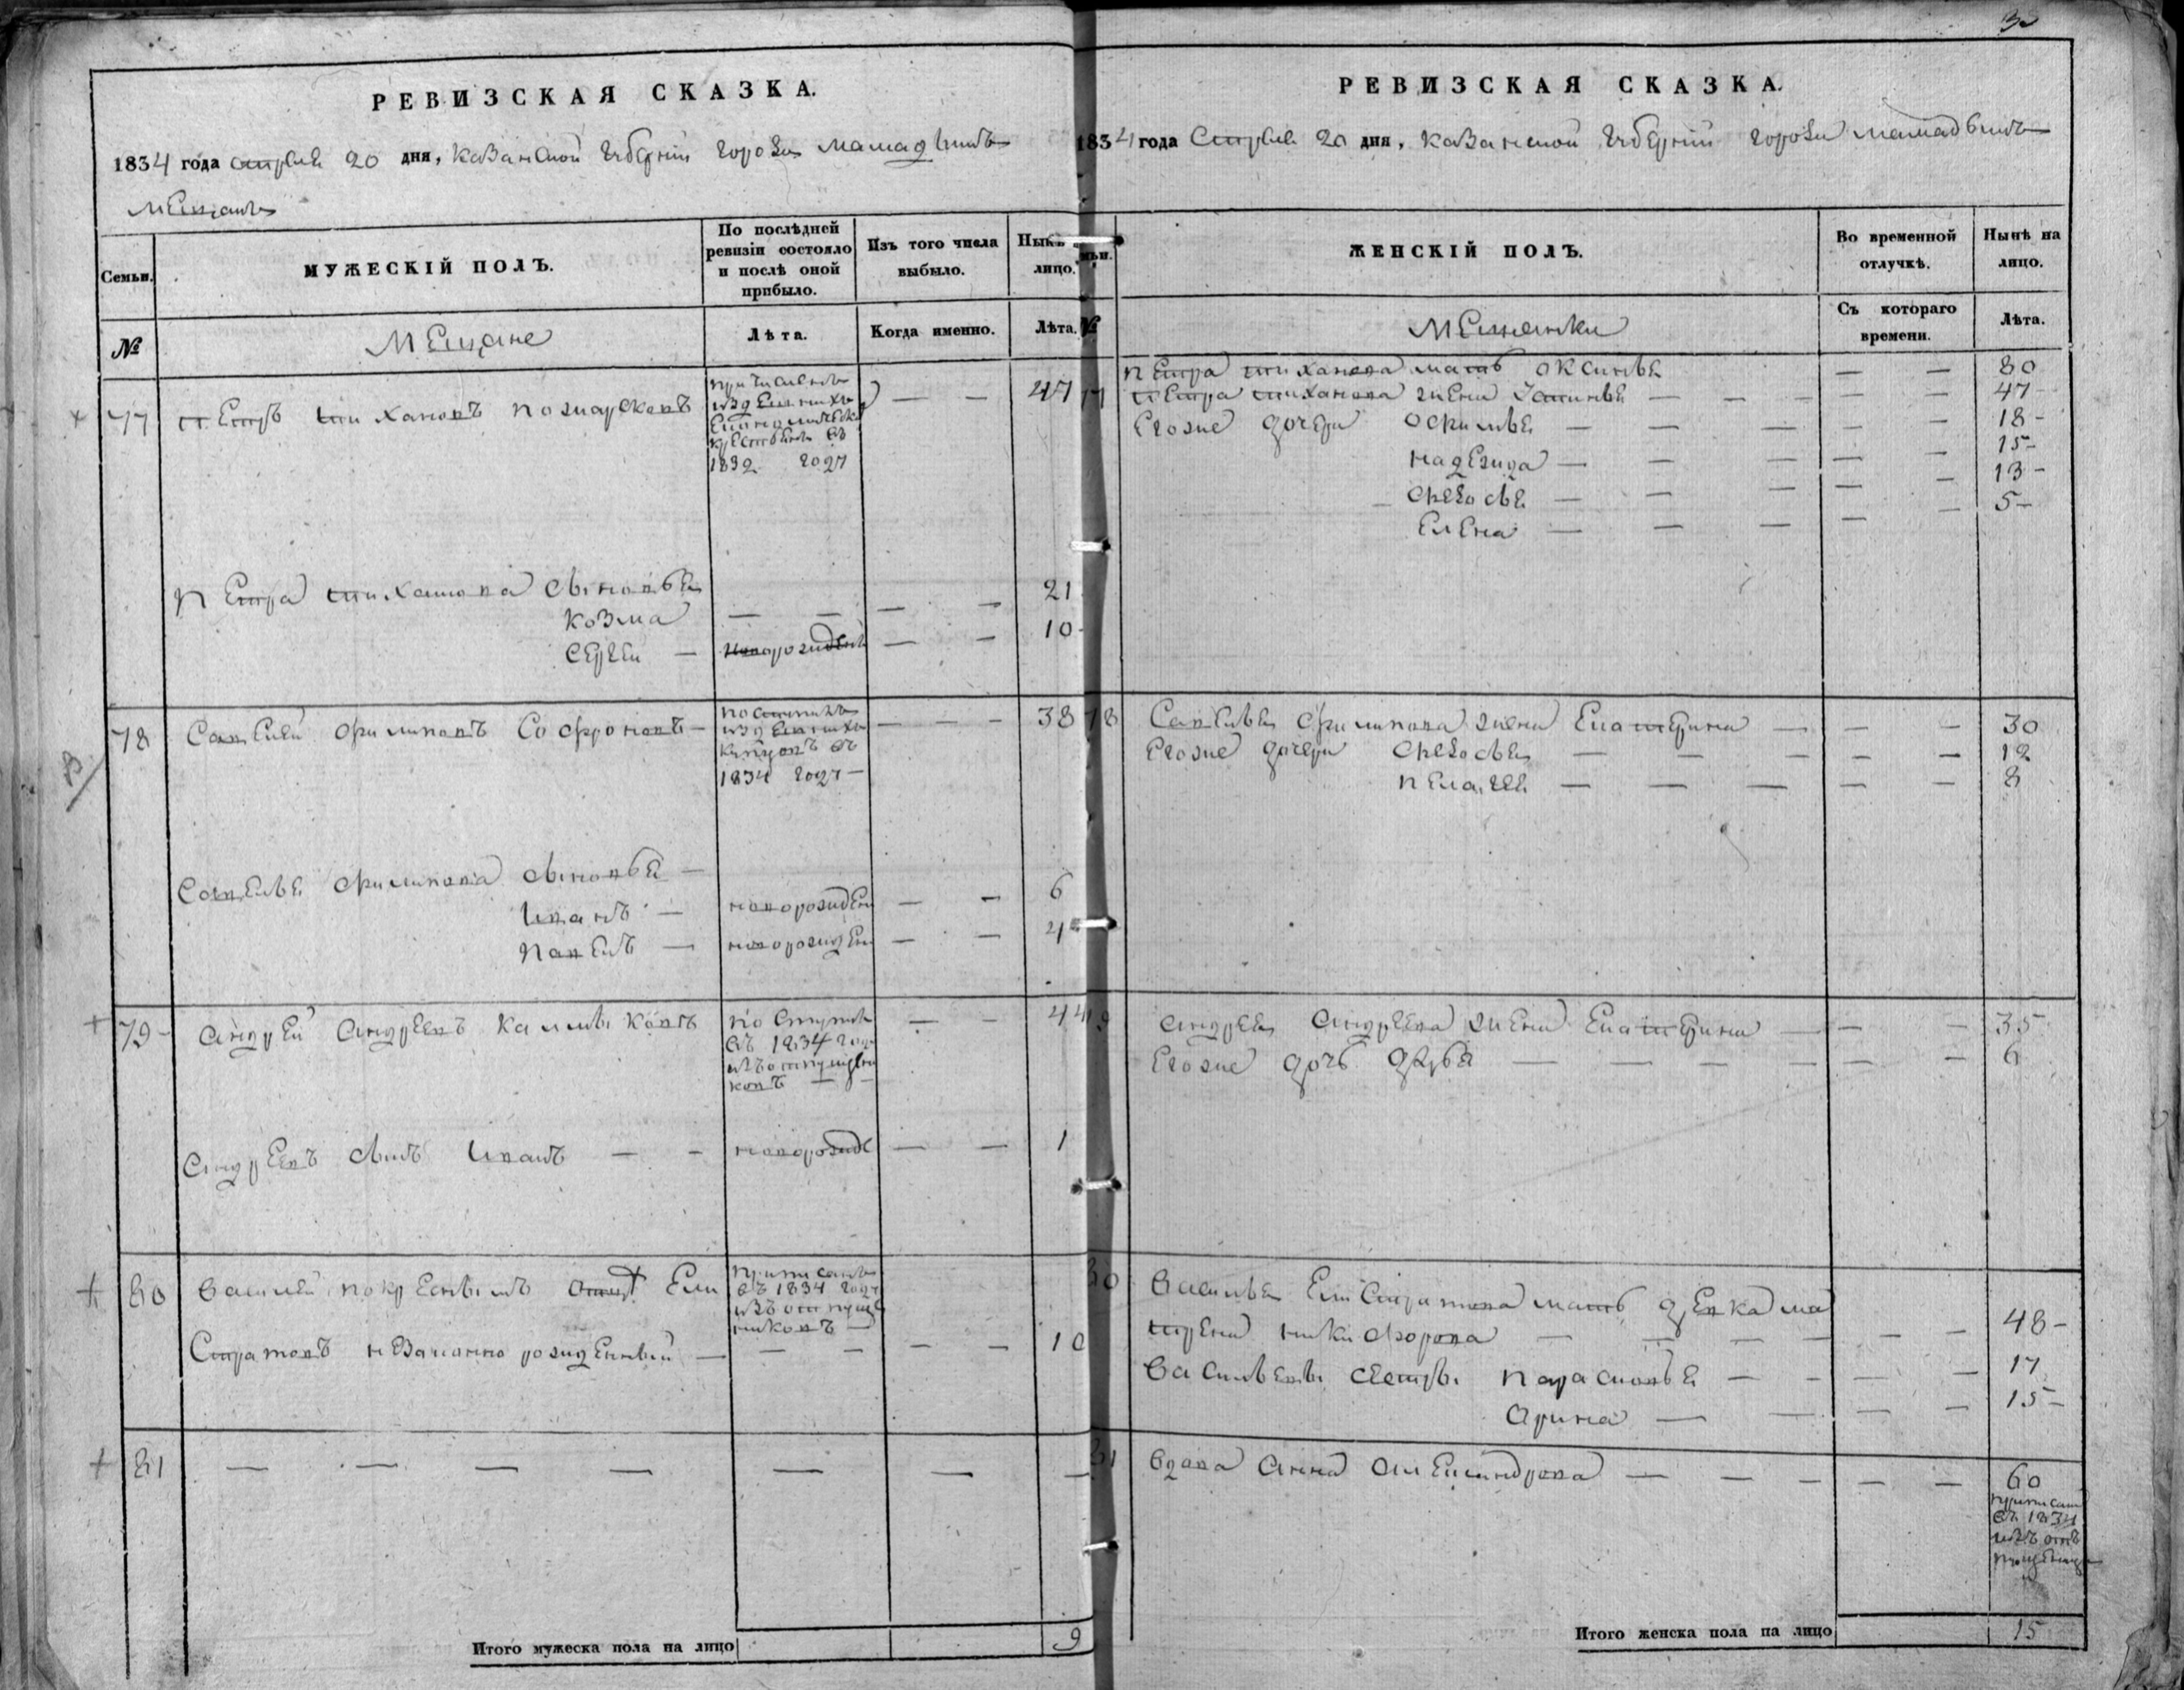 РЕВИЗСКАЯ СКАЗКА.
1834 года апреля 20 дня, казанской губернии города мамадышъ
мещанъ
Семьи.
МУЖЕСКІЙ ПОЛЪ.
По послѣдней ревизіи состояло и послѣ оной прибыло.
Изъ того числа выбыло.
лицо.
№
Мещане
Лѣта.
Когда именно.
Лѣта.
77 Петръ тихановъ пожарсковъ
47
1832 году
Петра тиханова сыновья
козма 21
сергеи — новорожден 10
78 Савелей филиповъ Софроновъ — 38
1834 году —
Савелья филипова сыновья —
иванъ — новорожден 6
павелъ — новорожден 4
79 андрей андреевъ калмыковъ 44
по ступи
въ 1834 году
изъ отпущени
ковъ —
андреевъ сынъ иванъ — новорожде 1
80 василей по крестному отцу Ели
стратовъ незаконно рожденный — 10
приписанъ
въ 1834 году
изъ отпуще
никовъ —
81
Итого мужеска пола на лицо 9
РЕВИЗСКАЯ СКАЗКА.
1834 года апреля 20 дня, казанской губернии города мамадышъ
ЖЕНСКІЙ ПОЛЪ.
Во временной отлучкѣ.
Нынѣ на лицо.
№
Мещанки
Съ котораго времени.
Лѣта.
петра тиханова мать оксинья 80
петра тиханова жена устинья 47
Егоже дочери офимья 18
надежда 15
федосья 13
Елена 5
78 Савелья филипова жена Екатерина 30
Егоже дочери федосья 12
пелагея 8
андрея андреева жена Екатерина 35
Егоже дочь дарья 6
80 василья Елистратова мать девка ма
трена никифорова 48
васильевы сестры парасковья 17
арина 15
81 вдова анна александрова 60
приписана
въ 1834
изъ отъ
пущениц
Итого женска пола на лицо 15